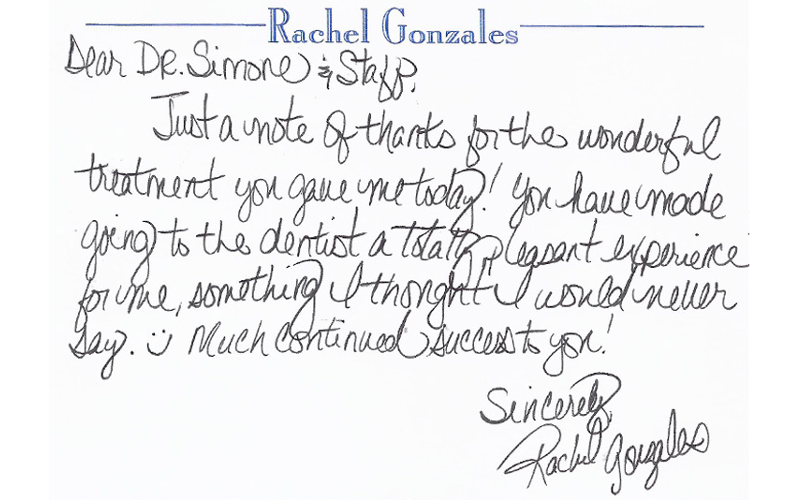 Rachel Gonzales
Dear Dr. Simone & Staff,
Just a note of thanks for the wonderful
treatment you gave me today! You have made
going to the dentist a totally pleasant experience
for me, something I thought I would never
say. :) Much continued success to you!
Sincerely,
Rachel Gonzales